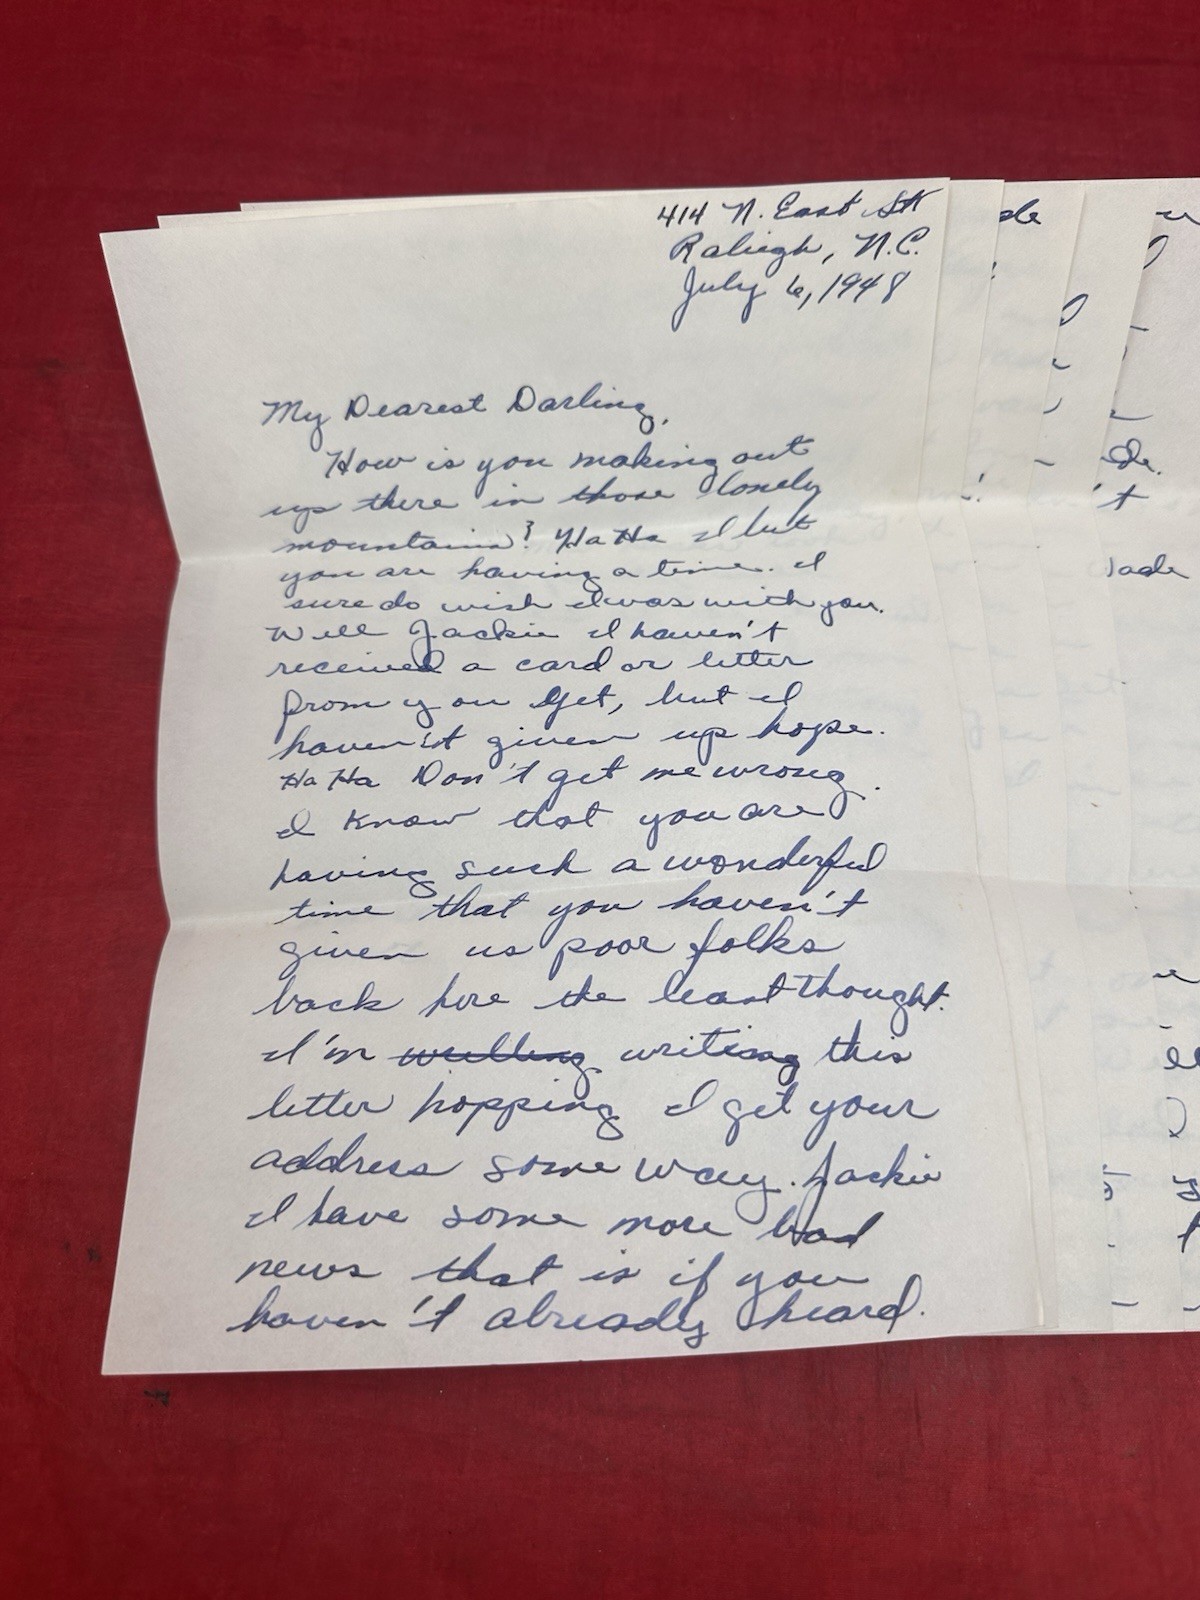 414 N. East St
Raliegh, N.C.
July 6, 1948
My Dearest Darling,
How is you making out
up there in those lonely
mountains? Ha Ha I but
you are having a time. I
sure do wish I was with you.
Well Jackie I haven't
received a card or letter
from you yet, but I
haven't given up hope.
Ha Ha Don't get me wrong.
I know that you are
having such a wonderful
time that you haven't
given us poor folks
back here the least thought.
I'm writing this
letter hopping I get your
address some way. Jackie
I have some more bad
news that is if you
haven't already heard.